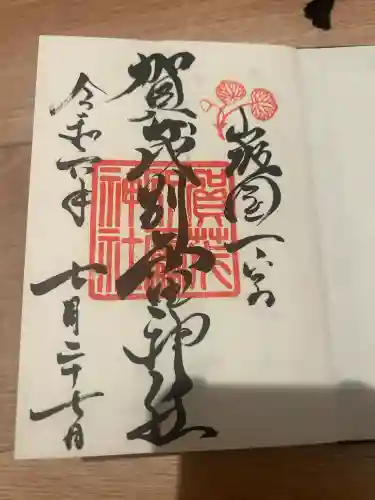 山城国一之宮
賀茂別雷神社
令和六年
七月二十七日
賀茂
別雷
神社